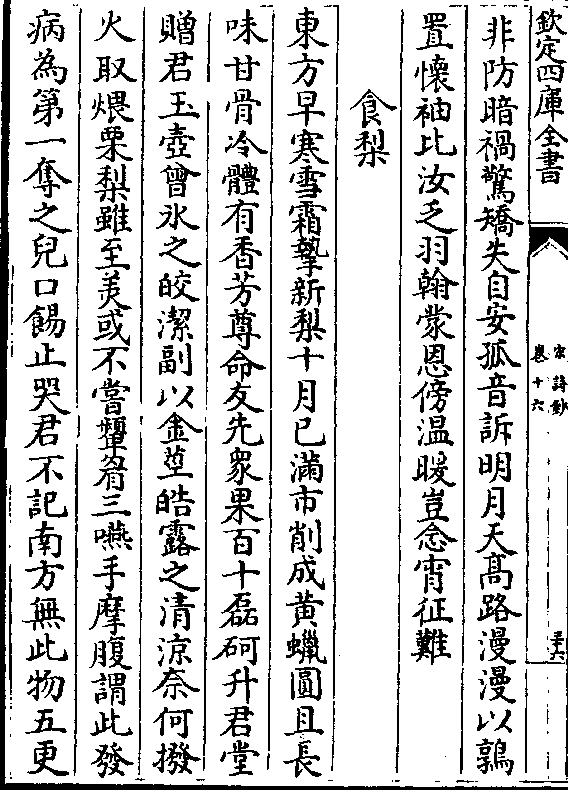 欽定四庫全書
宋詩鈔
卷十六
三六
非防暗禍驚矯失自安孤音訴明月天髙路漫漫以鶉
置懷袖比汝乏羽翰䝉恩傍溫暖豈念宵征難
食梨
東方早寒雪霜摯新梨十月已滿市削成黄蠟圓且長
味甘骨冷體有香芳尊命友先衆果百十磊砢升君堂
贈君玉壺曾氷之皎潔副以金莖皓露之清涼奈何撥
火取煨栗梨雖至美或不嘗顰眉三嚥手摩腹謂此發
病為第一奪之兒口餳止哭君不記南方無此物五更